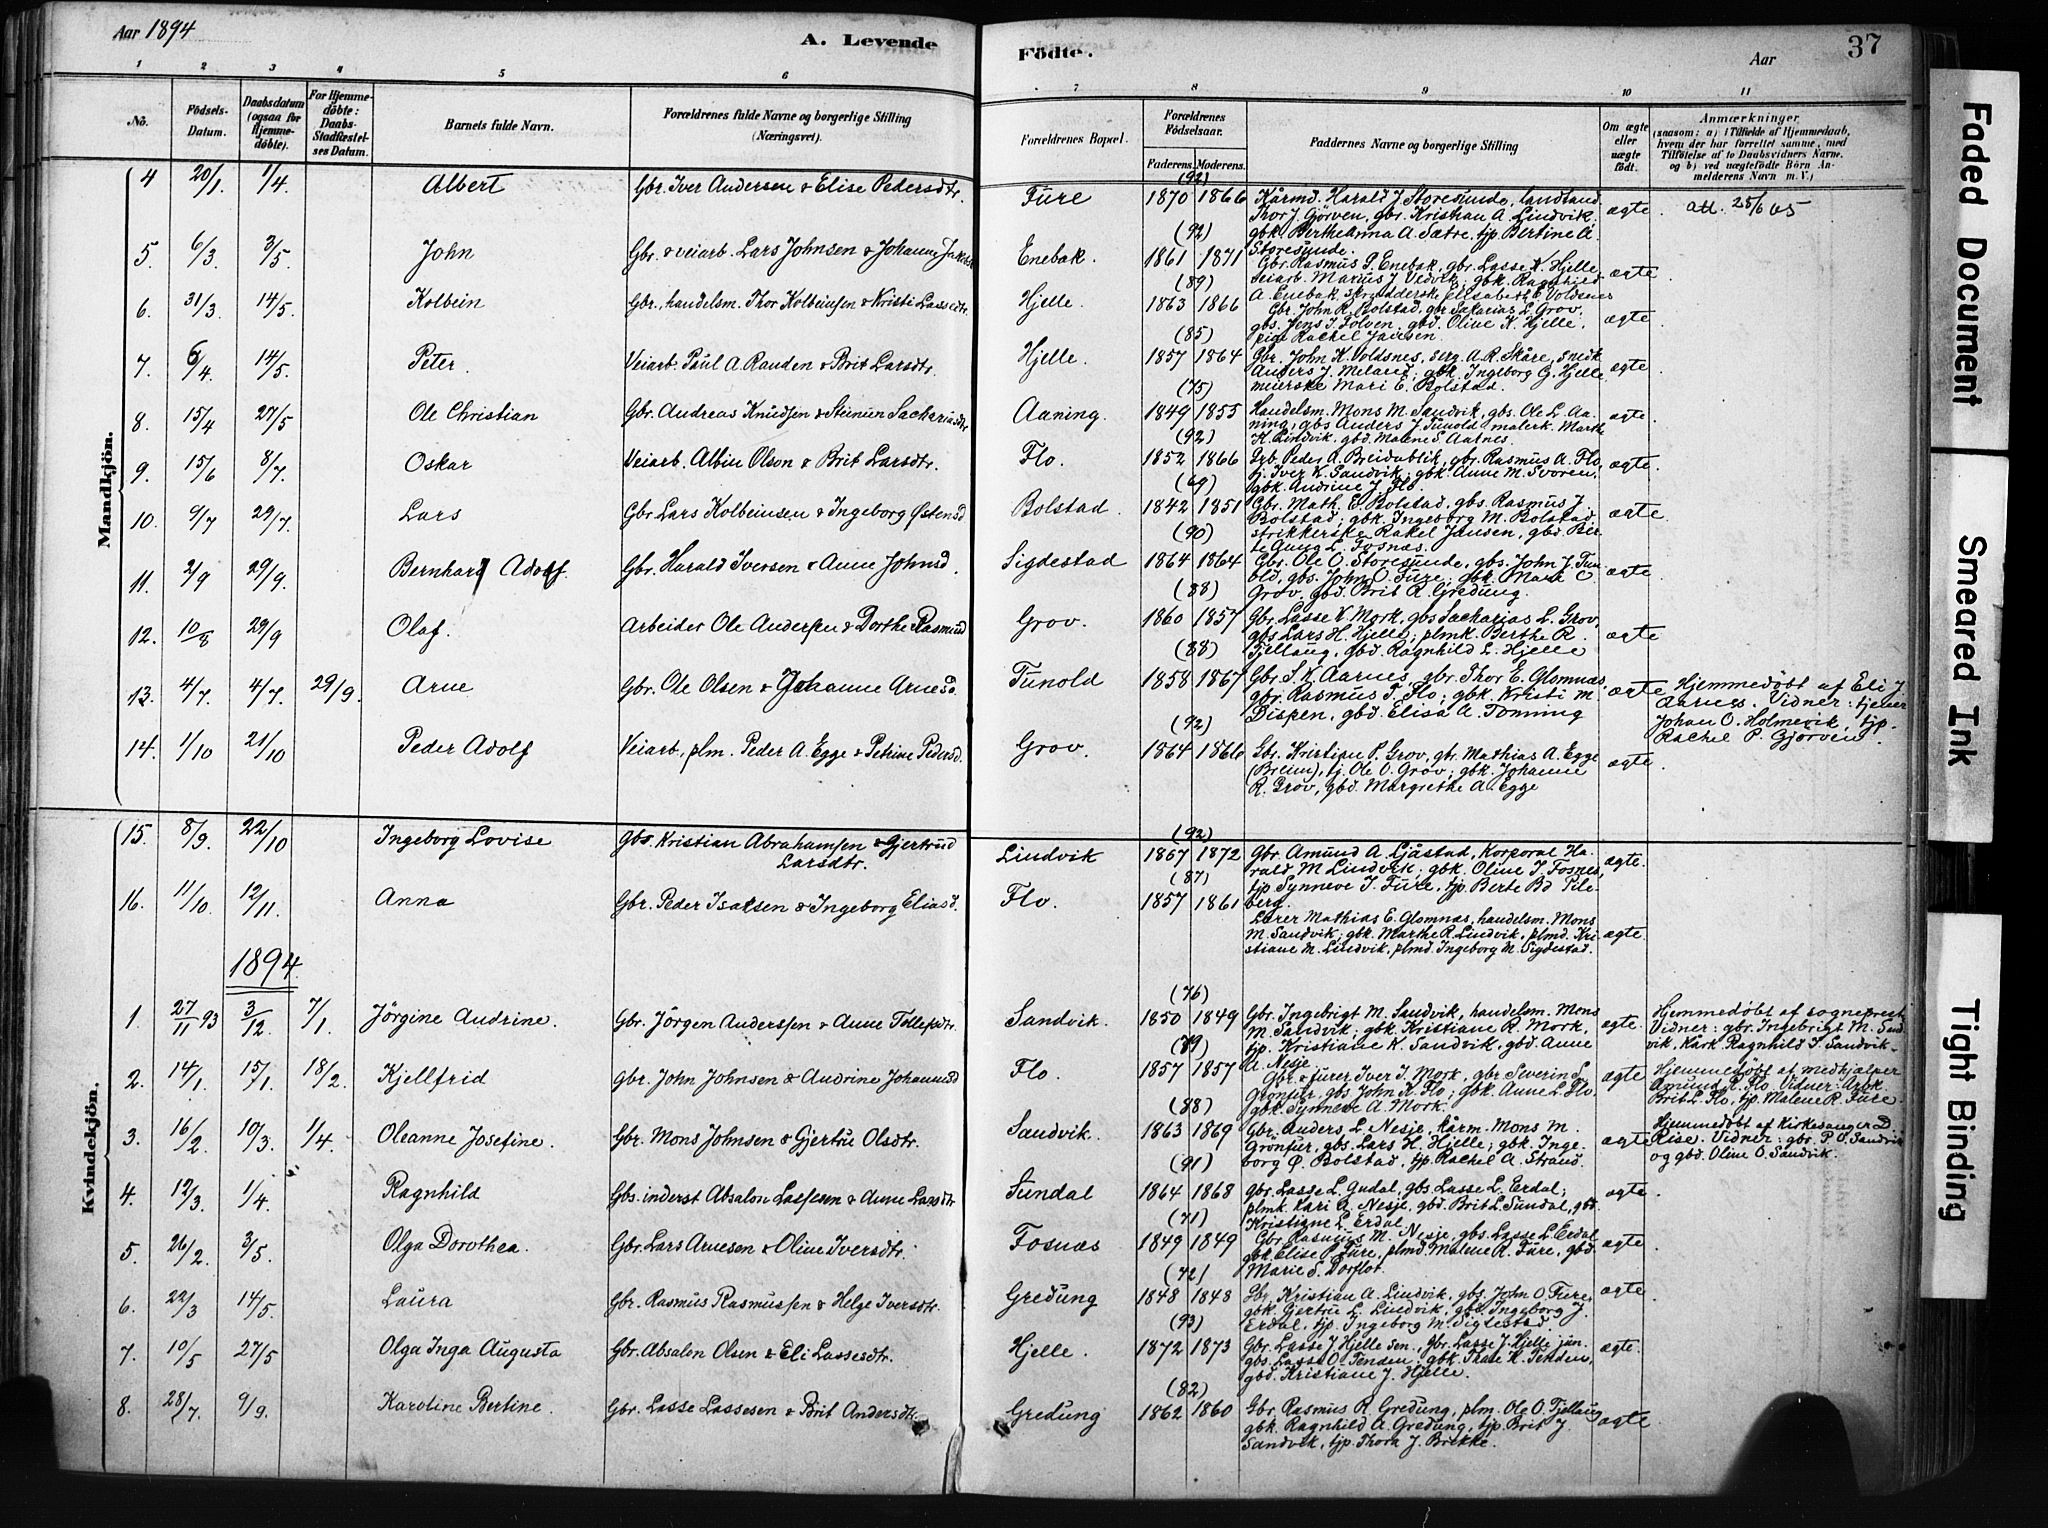 Aar 1894
A. Levende Födte.
Aar
37
1 2 3 4 5 6 7 8 9 10 11
No.
Födsels-Datum.
Daabsdatum (ogsaa for Hjemmedöbte).
For Hjemmedöbte: Daabs-Stadfæstelses Datum.
Barnets fulde Navn.
Forældrenes fulde Navne og borgerlige Stilling (Næringsvei).
Forældrenes Bopæl.
Forældrenes Födselsaar.
Faderens. Moderens.
Faddernes Navne og borgerlige Stilling
Om ægte eller uægte födt.
Anmærkninger
(saasom: a) i Tilfælde af Hjemmedaab, hvem der har forrettet samme, med Tilföielse af to Daabsvidners Navne, og b) ved uægtefödte Börn Anmelderens Navn m. V.)
Mandkjön.
4 20/1. 1/4. Albert Gbr. Iver Andersen & Elise Pedersdtr. Fure (92) 1870 1866 Kårmd. Harald J. Storesunde, landhand.
Thor J. Gjörven, gbr. Kristian A. Lindvik, ægte. att. 25/6 65
gbk. Berthe Anna A. Sætre, tjp. Bertine A.
Storesunde.
5. 6/3 3/5. John Gbr. & veiarb. Lars Johnsen & Johanne Enebak. (92) 1861 1871 Gbr. Rasmus P. Enebak, gbr. Lasse K. Hjelle, ægte.
veiarb. Marius J. Vedvik; gbk. Ragnhild
A. Enebak, skrædderske Elisabeth E. Voldsnes
6. 31/3 14/5. Kolbein Gbr., handelsm. Thor Kolbeinsen & Kristi Lassedtr. Hjelle. (89) 1863 1866 Gbr. John R. Bolstad, gbr. Sakarias L. Grov, ægte.
gbs. Jens J. Tolven, gbd. Oline K. Hjelle,
pige Rachel Jansen.
7. 6/4 14/5. Peter. Veiarb. Paul A. Rauden & Brit Larsdtr. Hjelle. (85) 1857 1864 Gbr. John K. Voldsnes, serg. A. R. Skåre, snedk.
Anders J. Meland; gbk. Ingeborg G. Hjelle, ægte.
meierske Mari E. Bolstad.
8. 15/4 27/5 Ole Christian Gbr. Andreas Knudsen & Steinun Sachariasdtr Aaning. (75) 1849 1855 Handelsm. Mons M. Sandvik, gbs. Ole L. Aa-
ning, gbs Anders J. Tunold malerk. Marthe ægte.
K. Lindvik, gbd. Malene S. Aarnes.
9. 15/6 8/7. Oskar Veiarb. Albin Olson & Brit Larsdtr. Flo. (92) 1852 1866 Gb. Peder A. Breidablik, gbr. Rasmus A. Flo, ægte.
tj. Iver K. Sandvik; gbk. Anne M. Svoren,
gbk. Andrine J. Flo
10. 9/7 29/7. Lars Gbr. Lars Kolbeinsen & Ingeborg Østensd Bolstad. (69) 1842 1851 Gbr. Math. E. Bolstad, gbs. Rasmus J.
Bolstad; gbk. Ingeborg M. Bolstad, ægte.
strikkerske Rakel Jansen, gbd. Ber-
te Anna L. Fosnæs.
11. 2/9 29/9. Bernhard Adolf. Gbr. Harald Iversen & Anne Johnsd. Sigdestad (90) 1864 1864 Gbr. Ole O. Storesunde, gbs. John J. Tun-
old, gbs. John O. Fure; gbk. Mari O ægte.
Grov, gbd. Brit R. Gredung.
12. 10/8 29/9 Olaf. Arbeider Ole Andersen & Dorthe Rasmusd Grov. (88) 1860 1857 Gbr. Lasse K. Mork, gbs Sacharias L. Grov,
gbs Lars H. Hjelle; plmk. Berthe R. ægte
Tjellaug, gbd. Ragnhild L. Hjelle
13. 4/7 4/7. 29/9. Arne Gbr. Ole Olsen & Johanne Arnesd. Tunold (88) 1858 1867 Gbr. S. K. Aarnes, gbr. Thor E. Glomnæs,
gbr. Rasmus P. Flo; gbk. Kristi M. ægte
Dispen, gbd. Elisa A. Tonning
Hjemmedøbt af Eli J.
Aarnes. Vidner: tjener
Johan O. Holmevik, tjp.
Rachel P. Gjörven.
14. 1/10 21/10 Peder Adolf Veiarb., plm. Peder A. Egge & Petrine Pedersd. Grov. (92) 1864 1866 Gbr. Kristian P. Grov, gbr. Mathias A. Egge
(Breim), tj. Ole O. Grov; gbk. Johanne ægte.
R. Grov, gbd. Margrethe A. Egge
Kvindekjön.
15. 8/9. 22/10 Ingeborg Lovise Gbs. Kristian Abrahamsen & Gjertrud
Larsdtr. Lindvik (92) 1867 1872 Gbr. Amund A. Ljåstad, Korporal Ha-
rald M. Lindvik; gbk. Oline J. Fosnes, ægte.
tjp. Synneve J. Fure, tjp. Berte Bd Pile-
berg.
16. 11/10. 12/11. Anna Gbr. Peder Isaksen & Ingeborg Eliasd. Flo. (87) 1857 1861
Lærer Mathias E. Glomnæs, handelsm. Mons
M. Sandvik; gbk. Marthe R. Lindvik, plmd. Kri- ægte.
stiane M. Lindvik, plmd. Ingeborg M. Sigdestad.
1894.
1. 27/11 93 3/12. 7/1. Jörgine Andrine. Gbr. Jörgen Anderssen & Anne Tollefsdtr. Sandvik. (76) 1850 1849 Gbr. Ingebrigt M. Sandvik, handelsm. Mons
M. Sandvik; gbk. Kristiane R. Mork, ægte.
tjp. Kristiane K. Sandvik, gbd. Anne
A. Nesje.
Hjemmedøbt af sogneprest
Vidner: gbr. Ingebrigt M. Sand
vik, kårk. Ragnhild J. Sandvik.
2. 14/1. 15/1. 18/2. Kjellfrid Gbr. John Johnsen & Andrine Johannesd Flo. (79) 1857 1857 Gbr. & furer Iver I. Mork, gbr Severin S.
Grönfur, gbs John K. Flo; gbk. Anne L. Flo, ægte
gbk. Synneve A. Mork.
Hjemmedøbt af medhjælper
Amund R. Flo. Vidner: Arbk.
Brit L. Flo, tjp. Malene R. Fure.
3. 16/2 10/3. 1/4. Oleanne Josefine. Gbr. Mons Johnsen & Gjertru Olsdtr. Sandvik. (88) 1863 1869 Gbr. Anders L. Nesje, kårm. Mons M.
Grönfur, gbs. Lars H. Hjelle; gbk. Inge- ægte
borg O. Bolstad, tjp Rachel A. Strand.
Hjemmedøbt af Kirkesanger D.
Rise. Vidner: gbr. P. O. Sandvik
og gbd. Oline O. Sandvik.
4. 12/3. 1/4. Ragnhild Gbs. inderst Absalon Lassesen & Anne Larsdtr Sundal (91) 1864 1868 Gbr. Lasse L. Gudal, gbs. Lasse L. Erdal; ægte.
plmk. Kari A. Nesje, gbd. Brit L. Sundal, gbd.
Kristiane L. Erdal.
5. 26/2. 3/5. Olga Dorothea. Gbr. Lars Arnesen & Oline Iversdtr. Fosnæs (71) 1849 1849 Gbr. Rasmus M. Nesje, gbs. Lasse L. Erdal,
gbk. Elise P. Fure, plmd. Malene R. Fure, gbd. ægte.
Marie S. Dorflot.
6. 22/3 14/5. Laura Gbr. Rasmus Rasmussen & Helge Iversdtr. Gredung (72) 1848 1848 Gbr. Kristian A. Lindvik, gbs. John O. Fure, ægte.
gbk. Gjertru L. Lindvik, gbd. Ingeborg J.
Erdal, tjp. Ingeborg M. Sigdestad.
7. 10/5 27/5 Olga Inga Augusta Gbr. Absalon Olsen & Eli Lassesdtr. Hjelle. (93) 1872 1873 Gbr. Lasse J. Hjelle sen., gbr. Lasse J. Hjelle jun., ægte.
gbs. Lasse O. Tenden; gbk. Thale K. Tenden,
gbd. Kristiane J. Hjelle.
8. 28/7. 9/9. Karoline Bertine. Gbr. Lasse Lassesen & Brit Andersdtr. Gredung (82) 1862 1860 Gbr. Rasmus R. Gredung, plm. Ole O. Tjellaug
gbk. Ragnhild A. Gredung, tjp Brit J. ægte.
Sandvik, tjp. Thora J. Brekke.
Faded Document
Smeared Ink
Tight Binding